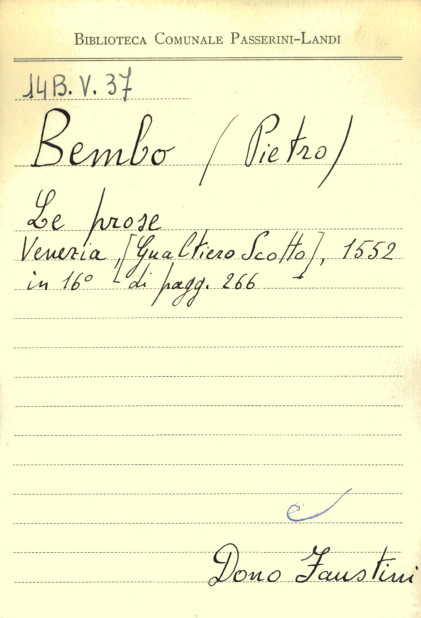 BIBLIOTECA COMUNALE PASSERINI-LANDI
14B. V. 37
Bembo (Pietro)
Le prose
Venezia, [Gualtiero Scotto], 1552
in 16° di pagg. 266
e
Dono Faustini